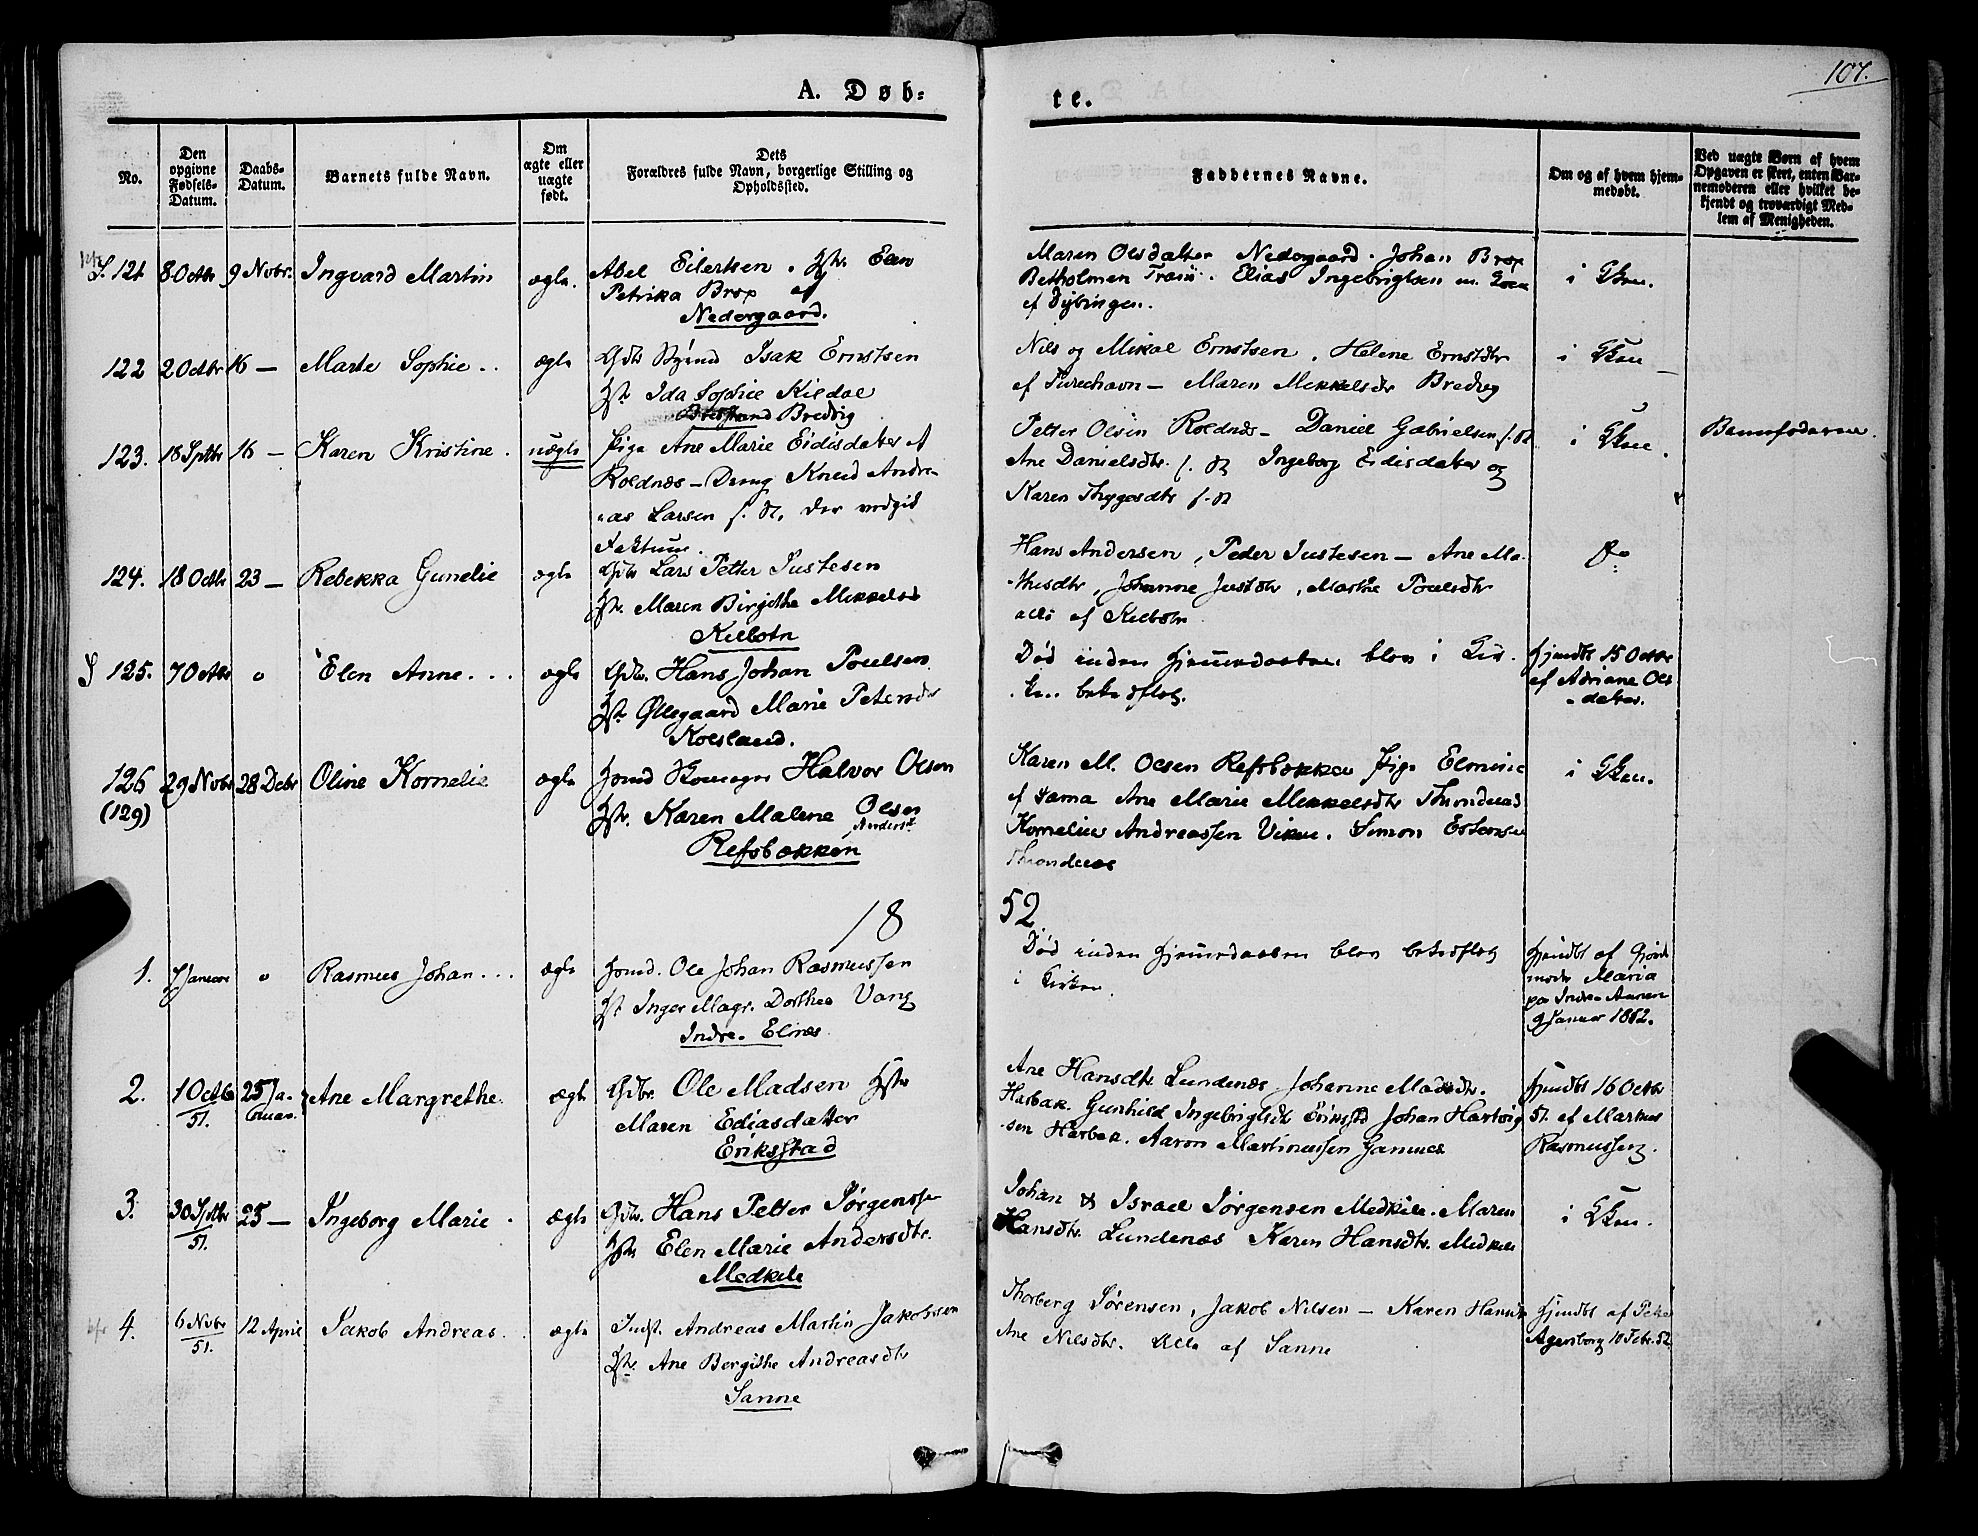 107.
A. Døb-
te.
No.
Den opgivne Fødsels-Datum.
Daabs-Datum.
Barnets fulde Navn.
Om ægte eller uægte født.
Dets Forældres fulde Navn, borgerlige Stilling og Opholdssted.
Faddernes Navne.
Om og af hvem hjem-medøbt.
Ved uægte Børn af hvem Opgaven er skeet, enten Bar-nemoderen eller hvilket be-kjendt og troværdigt Med-lem af Menigheden.
121 8 Octbr 9 Novbr. Ingvard Martin ægte.
Abel Eilertsen. Hstr. Elen
Petrika Brox af
Nedergaard.
Maren Olsdatter Nedergaard. Johan Brox
Elias Ingebrigtsen
af Dybingen.
i
122 2 Octbr 16 — Marte Sophie .. ægte
Isak Ernstsen
Hstr. Ida Sophie Kildal
Bredvig
Nils og Mikal Ernstsen, Helene Ernstdtr
af — Maren Mikkelsdtr Bredvig
i
123. 18 Sptbr 16 — Karen Kristine. uægte
Pige Ane Marie Eidisdatter
Roldnæs — Knud Andre-
as Larsen f. St. der vedgik
Faktum.
Petter Olsen Roldnæs — Daniel Gabrielsen f. St
Ane Danielsdtr. f. St Ingeborg Eidisdatter og
Karen Thygesdtr f. St
i
Barnefaderen.
124. 18 Octbr 23 — Rebekka Gunelie ægte
Lars Petter Justesen
Hstr. Maren Birgithe Mikkelsd
Kilbotn
Hans Andersen, Peder Justesen — Ane Ma-
thisdtr, Johanne Justdtr, Marthe Poulsdtr
alle af Kilbotn
Do
125. 7 Octbr o Elen Anne... ægte
Gdbr. Hans Johan Poulsen
Hstr Øllegaard Marie Petersdtr
Kolsland.
Død inden Hjemmedaaben blev i Kir-
ken bekræftet.
Hjemdbt 15 Octbr
af Adriane Ols-
datter.
126 29 Novbr 28 Decbr Oline Kornelie ægte
(129)
Halvor Olsen
Hstr. Karen Malene Olsen
Andersd.
Refsbækken
Karen M. Olsen Refsbækken Pige Elmine
af Sama Ane Marie Mikkelsdtr Throndenæs
Kornelius Andreassen Viken. Simon
Throndenæs
i
18
52
1. 7 Januar o Rasmus Johan... ægte
Ole Johan Rasmussen
Hstr Inger Magr. Dorthea Vang
Indre-Elnæs
Død inden Hjemmedaaben blev bekræftet
i Kirken.
Hjemdbt af Gjord-
moder Maria
paa
9 Januar 1852.
2. 1 Octbr 51. 25 Ja-nuar. Ane Margrethe. ægte
Gdbr. Ole Madsen Hstr
Maren Ediasdatter
Eriksstad
Ane Hansdtr Lundenæs Johanne Madsdtr.
Harbak. Gunhild Ingebrigtsdtr Eriksstd Johan Hartvig-
sen Harbak. Aaron Martinussen
Hjemdbt 16 Octbr
51. af Markus
Rasmussen.
3. 30 Sptbr 51. 25 — Ingeborg Marie. ægte
Gdbr. Hans Petter Jørgensen
Hstr. Elen Marie Andersdtr.
Medkile
Johan & Israel Jørgensen Medkile. Maren
Hansdtr. Lundenæs Karen Hansdtr. Medkile
i
4. 6 Novbr 51. 12 April Jakob Andreas.. ægte
Indst. Andreas Martin Jakobsen
Hstr. Ane Bergithe Andreasdtr
Sanne
Thorberg Sørensen, Jakob Nilsen — Karen Hansdtr
Ane Nilsdtr. Alle af Sanne
Hjemdbt af
10 Febr. 52